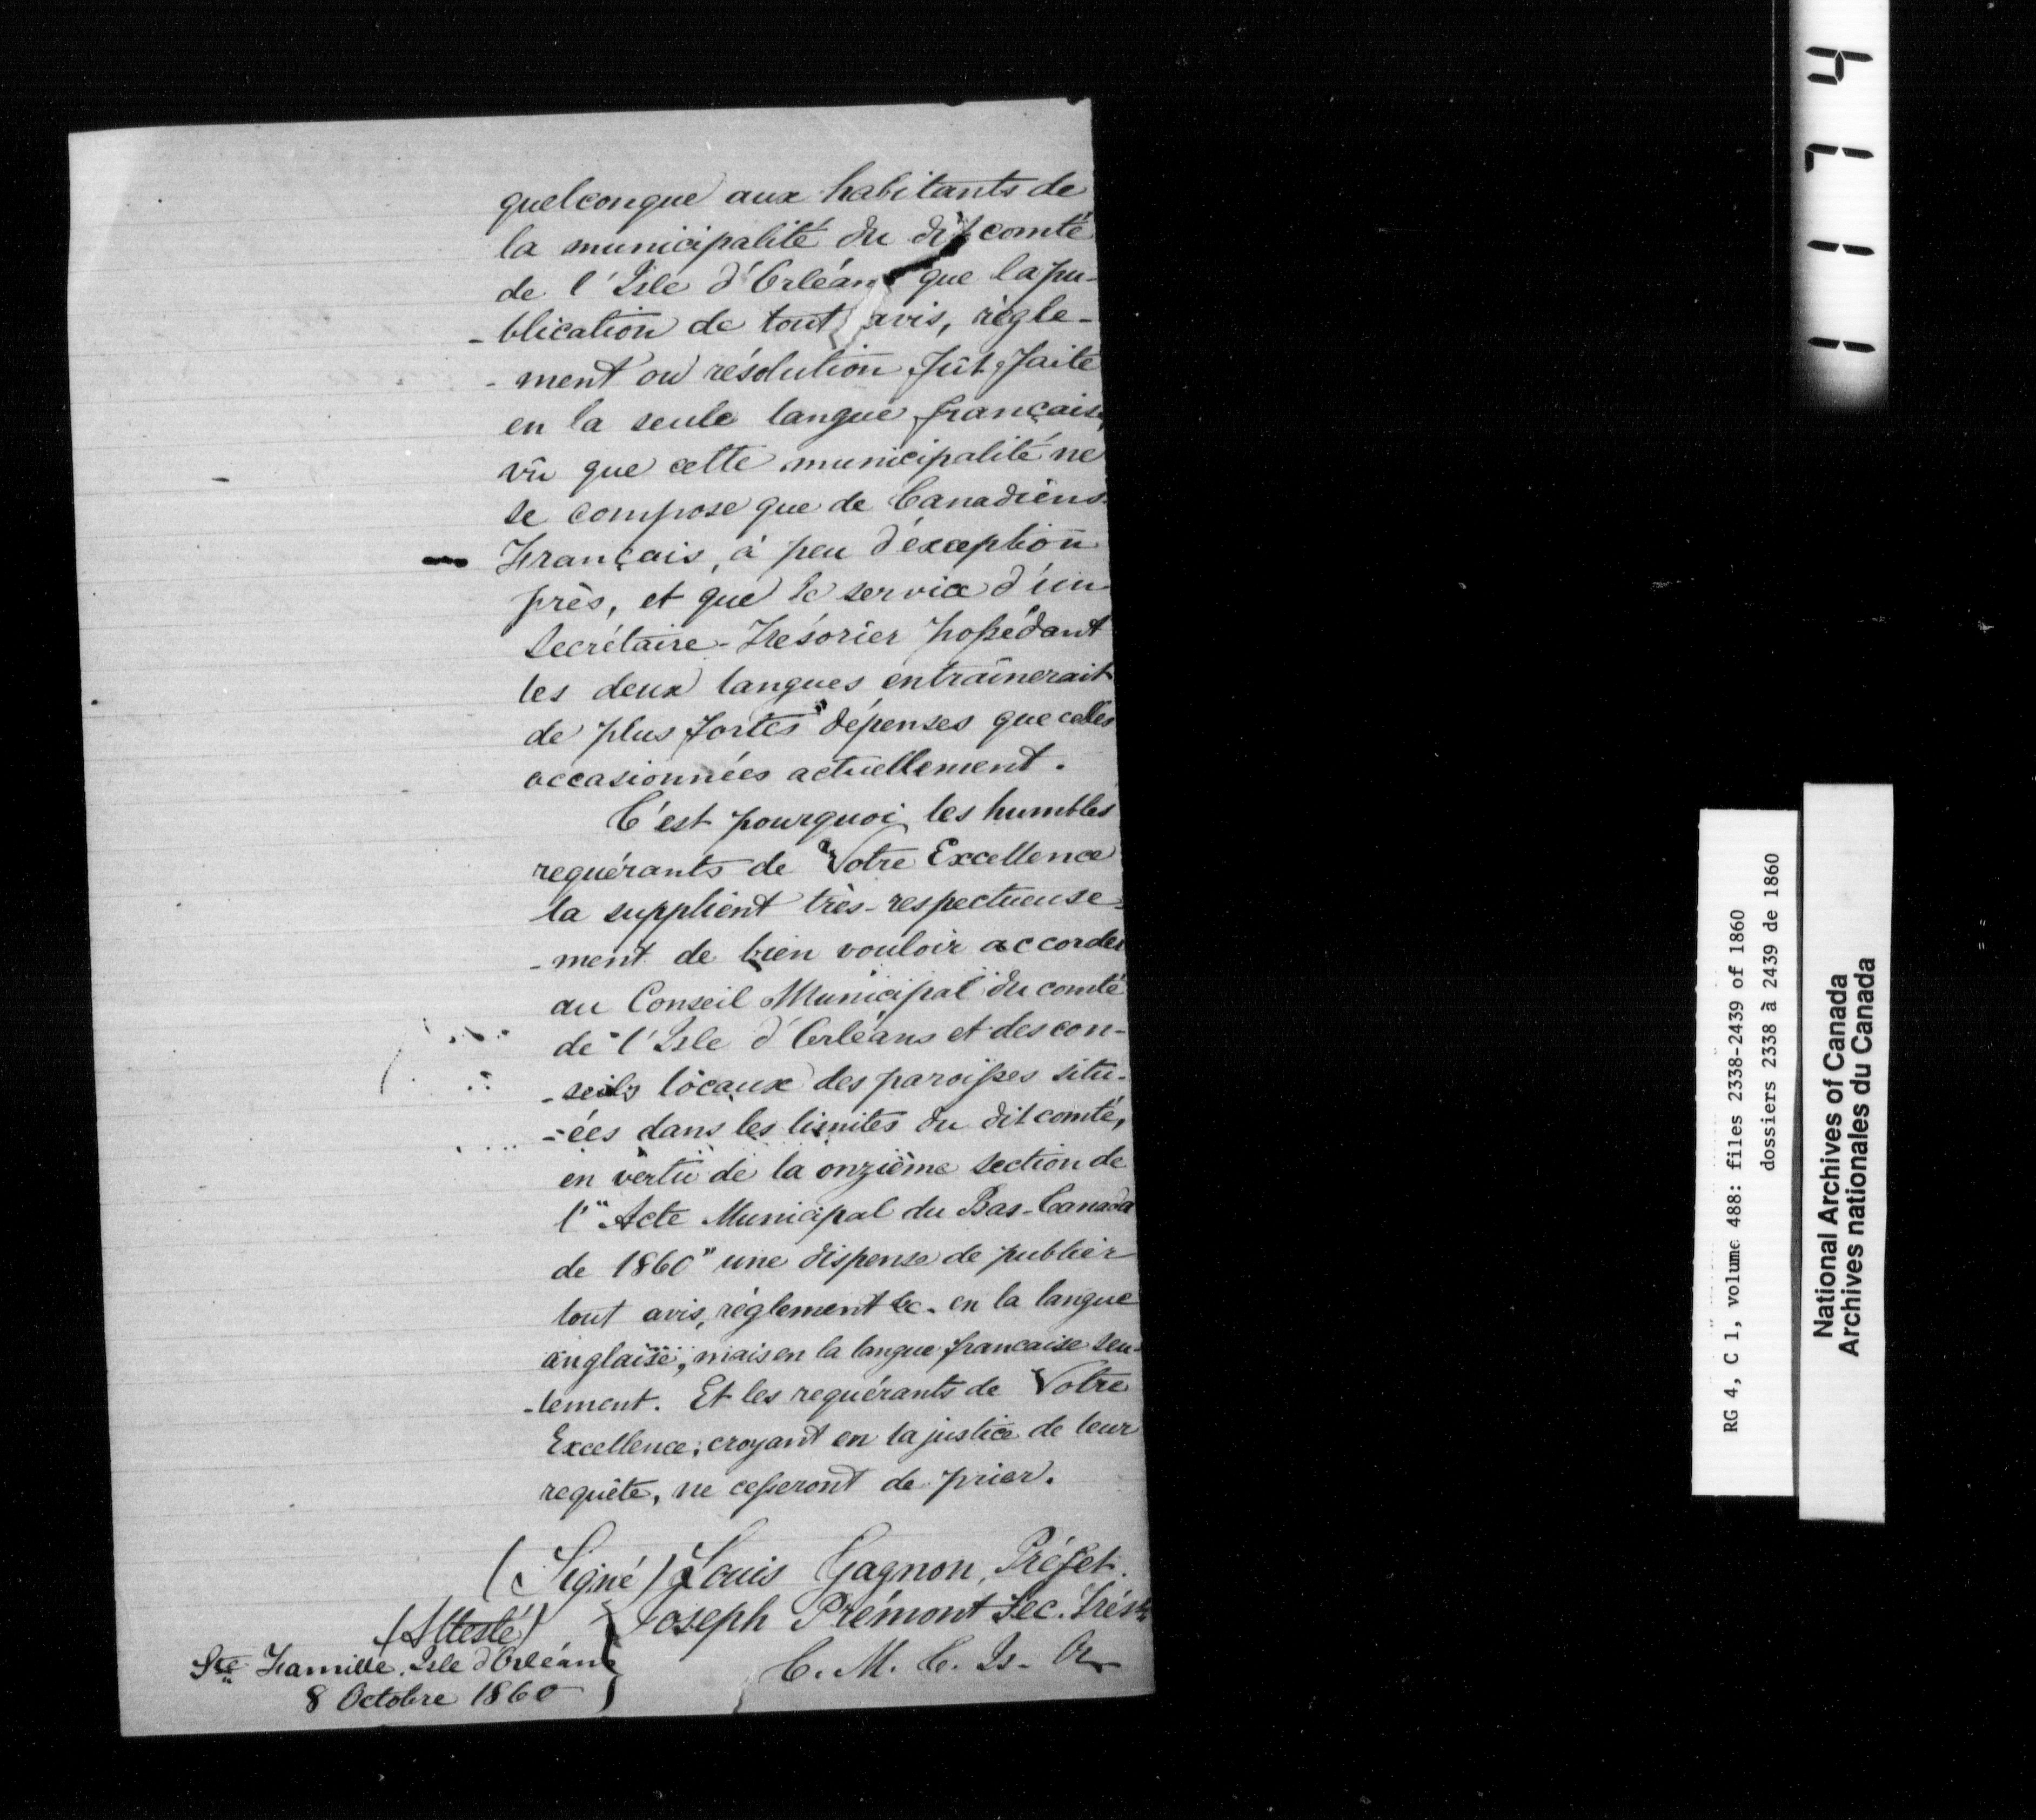 quelconque aux habitants de
la municipalité du dit comté
de l'Isle d'Orléans que la pu-
-blication de tout avis, règle-
-ment ou résolution fût faite
en la seule langue française,
vû que cette municipalité ne
se compose que de Canadiens
Français, à peu d'exception
près, et que le service d'un
Secrétaire-Trésorier possédant
les deux langues entraînerait
de plus fortes dépenses que celles
occasionnées actuellement.
C'est pourquoi les humbles
requérants de Votre Excellence
la supplient très-respectueuse-
-ment de bien vouloir accorder
au Conseil Municipal du comté
de l'Isle d'Orléans et des con-
-seils locaux des paroisses situ-
-ées dans les limites du dit comté,
en vertu de la onzième section de
l'"Acte Municipal du Bas-Canada
de 1860" une dispense de publier
tout avis, règlement &c. en la langue
anglaise, mais en la langue francaise seu-
-lement. Et les requérants de Votre
Excellence, croyant en la justice de leur
requête, ne cesseront de prier.
(Signé) Louis Gagnon, Préfet.
Joseph Prémont Sec. Trés.
(Attesté)
Ste Famille, Isle d'Orléans
8 Octobre 1860
C. M. C. Is. Or
1174
RG 4, C 1, volume 488: files 2338-2439 of 1860
dossiers 2338 à 2439 de 1860
National Archives of Canada
Archives nationales du Canada